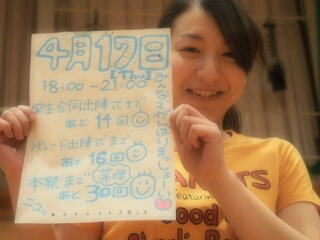 4月17日
【Thu】
18:00-21:00
学生合同出陣式まで
あと 14回
パレード出陣式まで
あと 16回
本祭まで
あと 30回
菜理
みんなでがんばりまっしょー!
ニコッ
2014
NUTS
Featuring
Good